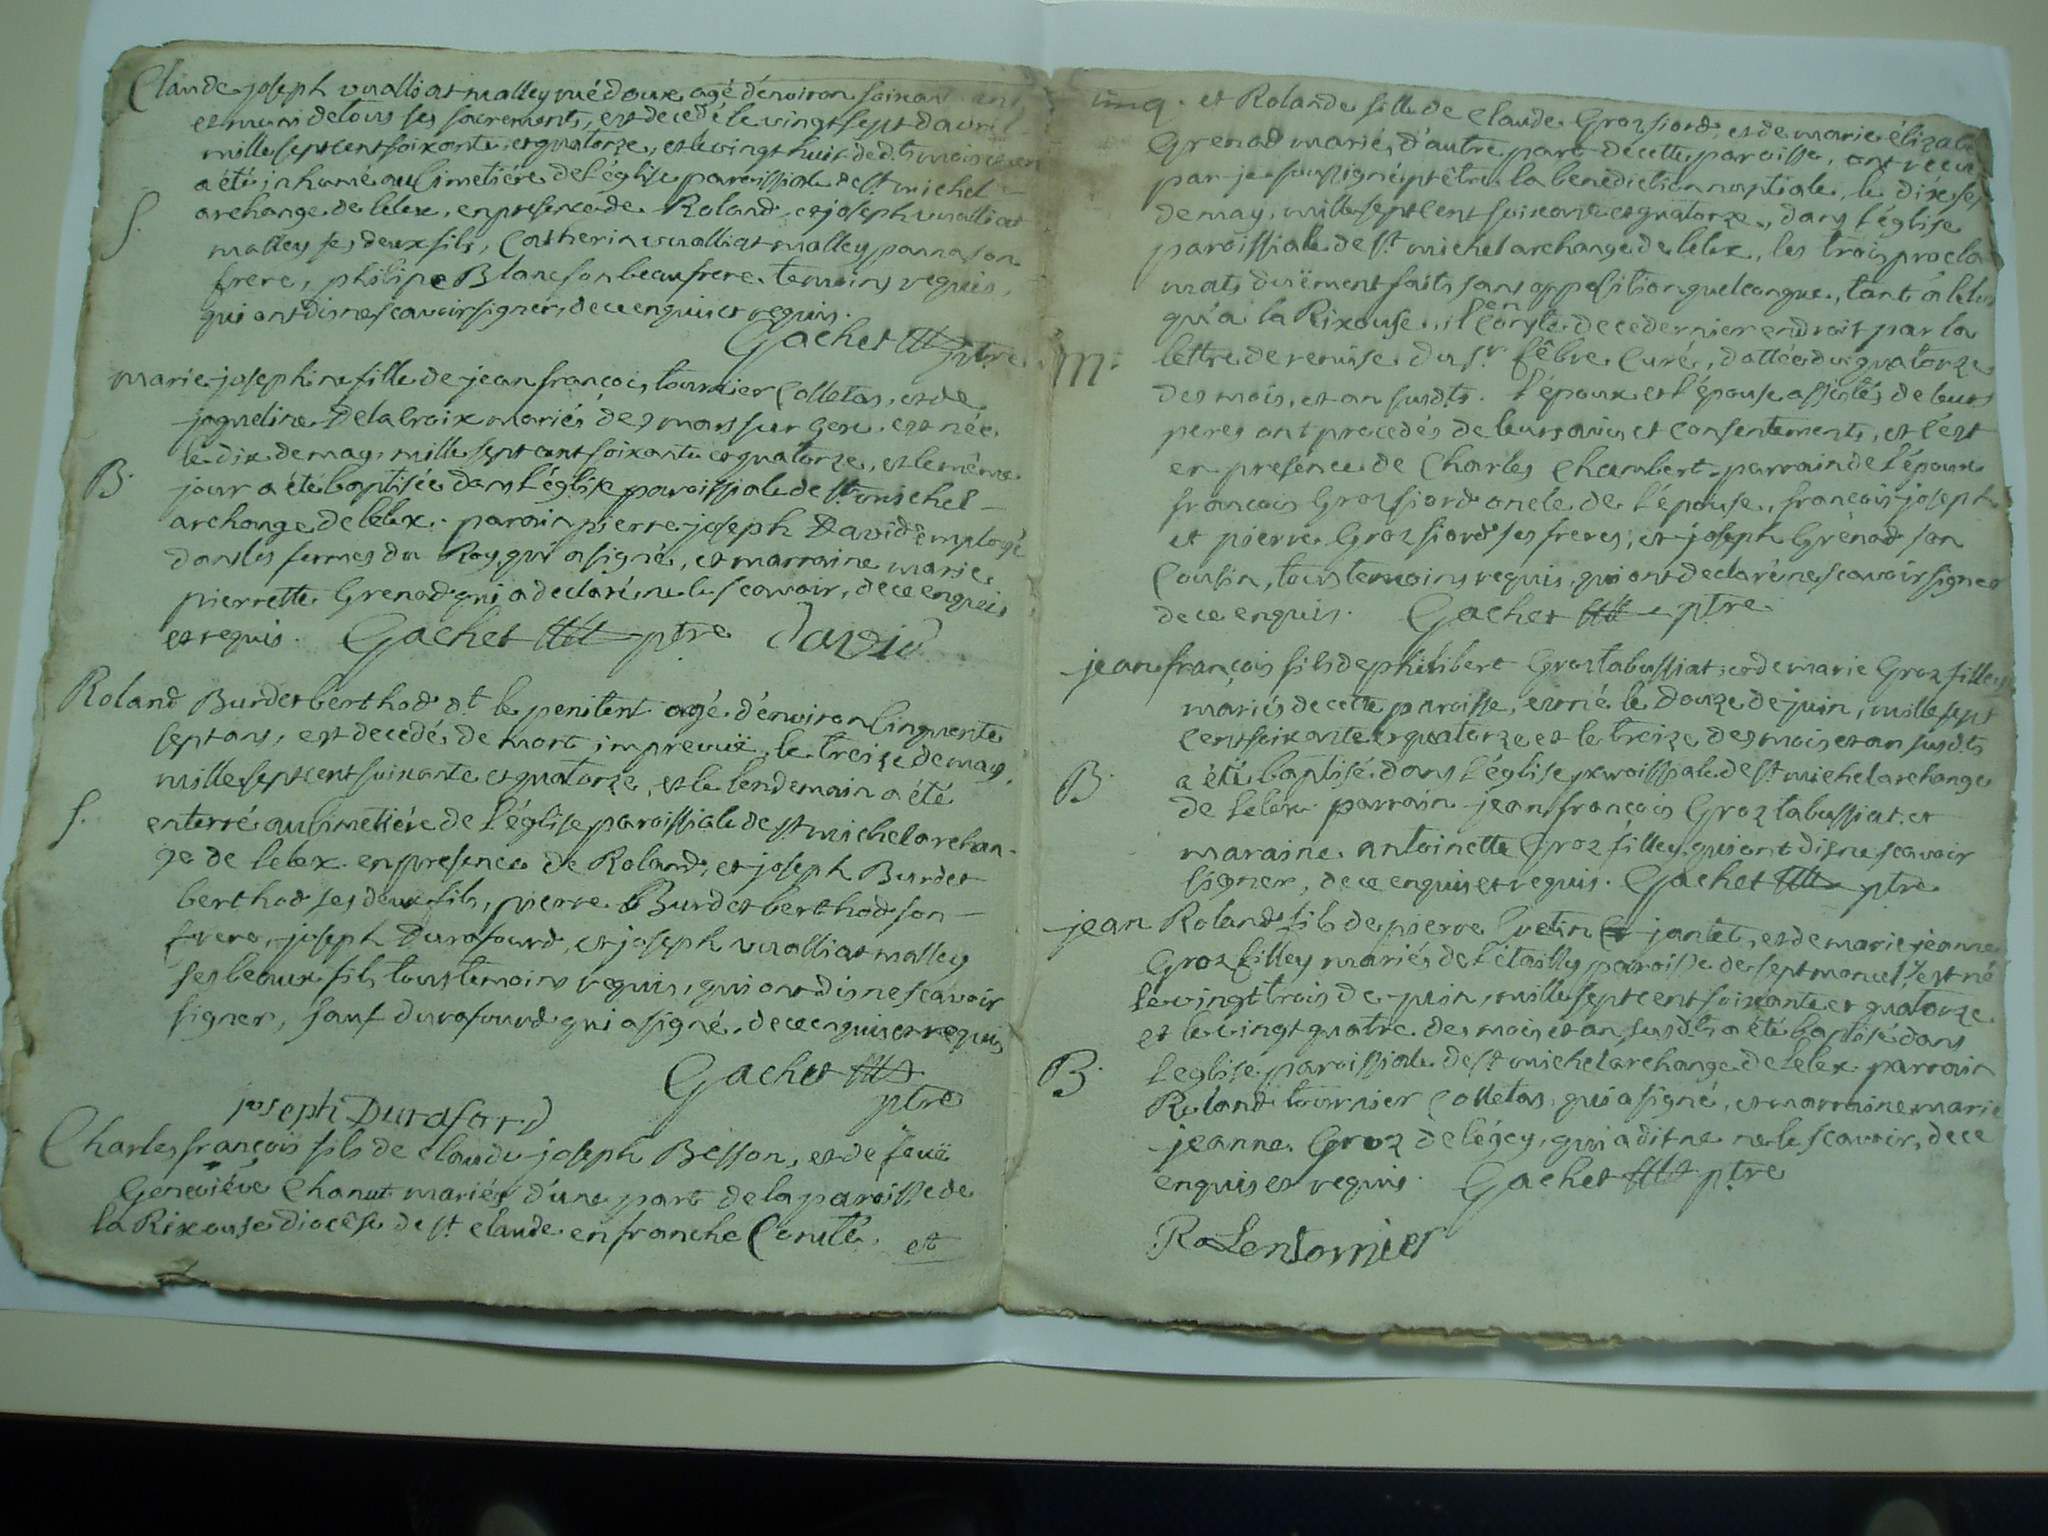 Claude joseph vualliat malley agé d'environ soixante ans
et muni de tous ses sacrements, est decedé le vingt sept d'avril
mille sept cent soixante et quatorze, et le vingt huit de dts mois et an
a été inhumé au cimetiére de l'église paroissiale de st michel
archange de lelex, en presence de Roland, et joseph vualliat
malley ses deux fils, Catherin vualliat malley panna son
frere, philipe Blanc son beau frere temoins requis,
qui ont dis ne scavoir signer, de ce enquis et requis.
S.
Gachet ptre
marie josephine fille de jean françois tournier Colletas, et de
jaqueline Delacroix mariés de Gex, est née
le dix de may, mille sept cent soixante et quatorze, et le même
B.
jour a été baptisée dans l'église paroissiale de st michel
archange de lelex. parain pierre joseph David employé
dans les fermes du Roy, qui a signé, et marraine marie
pierrette Grenod qui a declaré ne le scavoir, de ce enquis
et requis. Gachet ptre David
Roland Burdet berthod dt le penitent agé d'environ Cinquente
sept ans, est decedé de mort impreuüe, le treize de may,
mille sept cent soixante et quatorze, et le lendemain a été
S.
enterré au cimetiére de l'église paroissiale de st michel archan-
ge de lelex en presence de Roland, et joseph Burdet
berthod ses deux fils, pierre Burdet berthod son
frere, joseph Durafourd, et joseph vualliat malley
ses beaux fils tous temoins requis, qui ont dis ne scavoir
signer, sauf durafourd qui a signé, de ce enquis et requis
Gachet
ptre
joseph Duraford
Charles françois fils de claude joseph Besson, et de feuë
Geneviéve Chanut mariés, d'une part de la paroisse de
la Rixouse diocêse de st claude en franche Comté,
et
cinq. et Rolande fille de Claude Groz fiord, et de marie élizabe
Grenod mariés, d'autre part de cette paroisse, ont reçeu
par je soussigné prêtre la benediction nuptiale, le dix sep
de may, mille sept cent soixante et quatorze, dans l'église
paroissiale de st michel archange de lelex, les trois procla
mats duëment faits sans opposition quelconque, tant à lelex
qu'à la Rixouse, il Conste de ce dernier endroit par la
M.
lettre de remise du sr fêbre Curé, dattée du quatorze
des mois, et an susdts. l'époux et l'épouse assistés de leurs
peres ont procedés de leurs avis et consentements, et c'est
en presence de Charles Chambert parrain de l'époux
françois Groz fiord oncle de l'épouse, françois joseph
et pierre Groz fiord ses freres, et joseph Grénod son
Cousin, tous temoins requis, qui ont declaré ne scavoir signer
de ce enquis. Gachet ptre
jean françois fils de philibert Groz tabussiat, et de marie Groz filley
mariés de cette paroisse, est né le douze de juin, mille sept
cent soixante et quatorze et le treize des mois et an susdts
B.
a été baptisé dans l'église paroissiale de st michel archange
de lelex. parrain jean françois Groz tabussiat et
maraine antoinette Groz filley, qui ont dis ne scavoir
signer, de ce enquis et requis. Gachet ptre
jean Roland fils de pierre Cretin jantet, et de marie jeanne
Groz filley mariés de paroisse de septmoncel, est né
le vingt trois de juin, mille sept cent soixante et quatorze
et le vingt quatre des mois et an susdts a été baptisé dans
B.
l'eglise paroissiale de st michel archange de lelex parrain
Roland tournier Colletas, qui a signé, et marraine marie
jeanne Groz delégey, qui a dit ne ne le scavoir, de ce
enquis et requis. Gachet ptre